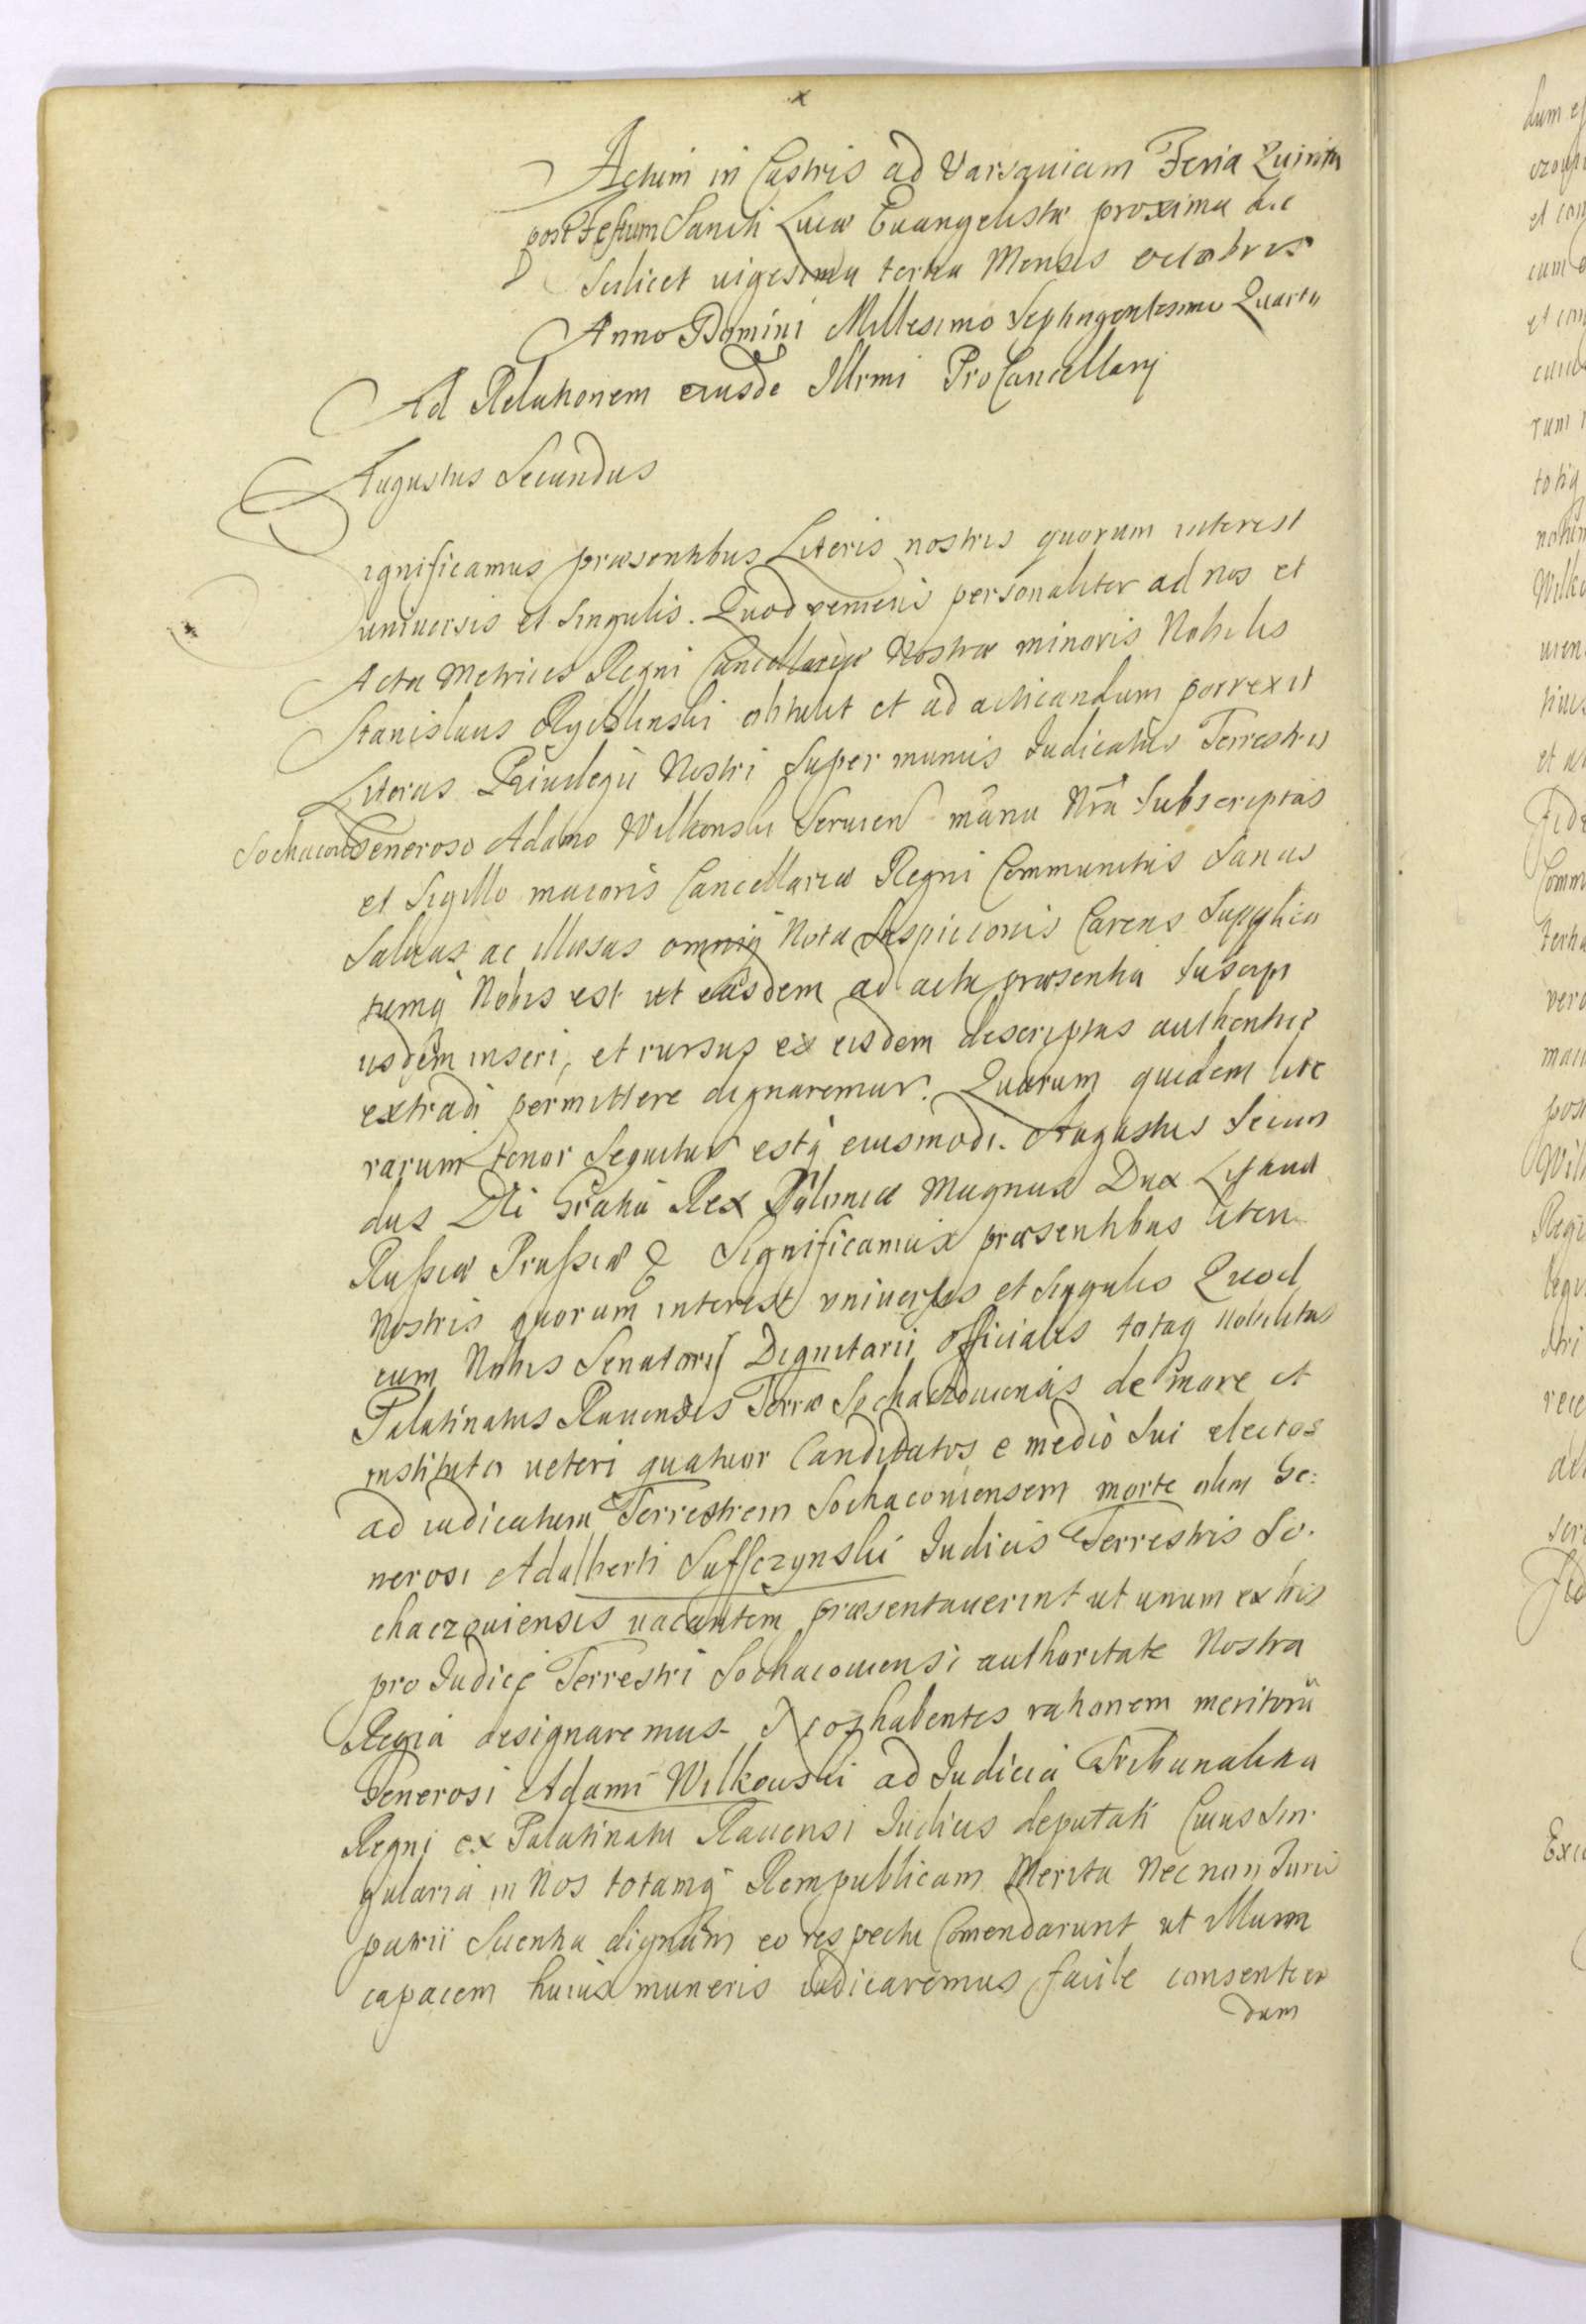 Actum in Castris ad Varsauiam Feria Quinta
post Festum Sancti Lucæ Euangelistæ proxima die
scilicet uigesima tertia Mensis octobris
Anno Domini Millesimo Septingentesimo Quarto
Ad Relationem eiusde Illrmi ProCancellarij
Augustus Secundus
Significamus præsentibus Literis nostris quorum interest
uniuersis et singulis. Quod veniens personaliter ad nos et
Acta Metrices Regni Cancellariæ Nostræ minoris Nobilis
Stanislaus obtulit et ad acticandum porrexit
Literas Priuilegii Nostri super munus Iudicatus Terrestris
Sochacou Generoso Adamo Wilkonski seruien manu Nra Subscriptas
et Sigillo maioris Cancellariæ Regni Communitas Sanas
Saluas ac illæsas omniq Nota Suspicionis Carens Supplica
tumq Nobis est ut easdem ad acta præsentia suscipi
iisdem inseri, et rursus ex eisdem descriptas authentice
extradi permittere dignaremur. Quarum quidem lite
rarum tenor sequitur estq eiusmodi. Augustus Secun
dus Dei Gratia Rex Poloniæ Magnus Dux Lithua
Rußiæ Prußiæ & Significamus præsentibus liteir
Nostris quorum interest vniuersis et singulis Quod
cum Nobis Senatores Dignitarii officiales totaq Nobilitas
Palatinatus Rauensis Terræ Sochaczouiensis de more et
instituto ueteri quatuor Candidatos e medio sui electos
ad iudicatum Terrestrem Sochacouiensem morte olim Ge:
nerosi Adalberti Suffczynski Iudicis Terrestris So.
chaczouiensis uacantem præsentauerint ut unum ex his
pro Iudice Terrestri Sochacouiensi authoritate Nostra
Regia designaremus habentes rationem meritorū
Generosi Adami Wilkonski ad Iudicia Tribunalitia
Regni ex Palatinatu Rauensi Iudicis deputati Cuius sin.
gularia in Nos totamq Rempublicam Merita Nec non Iuris
patrii Scientia dignum eo respectu Comendarunt ut illum
capacem huius muneris iudicaremus facile consentien
dum